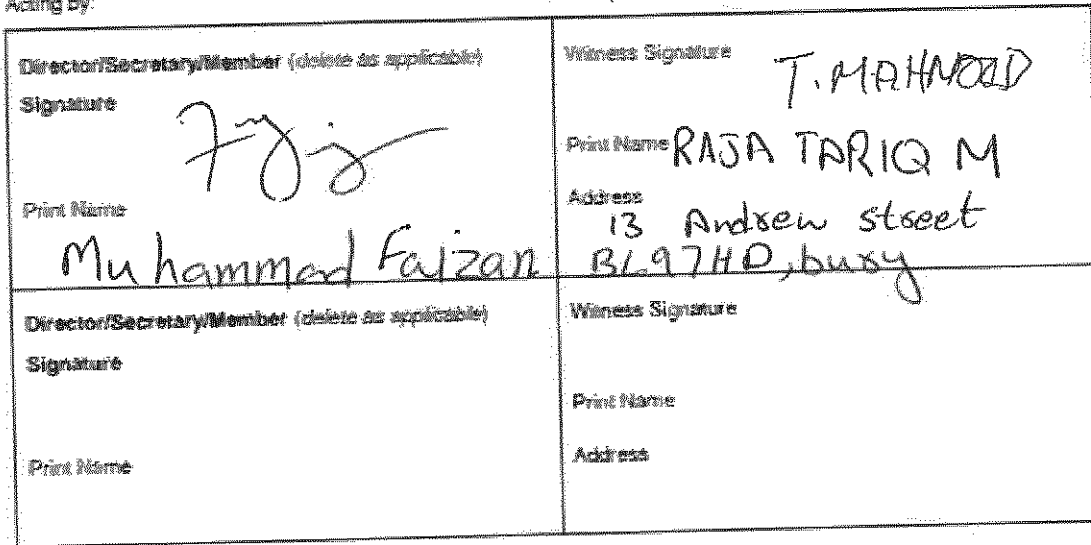 Acting by:
Director/Secretary/Member (delete as applicable)
Signature
Print Name
Muhammad Faizan
Witness Signature
T. MAHMOOD
Print Name RAJA TARIQ M
Address
13 Andrew street
BL97HD, bury
Director/Secretary/Member (delete as applicable)
Signature
Print Name
Witness Signature
Print Name
Address